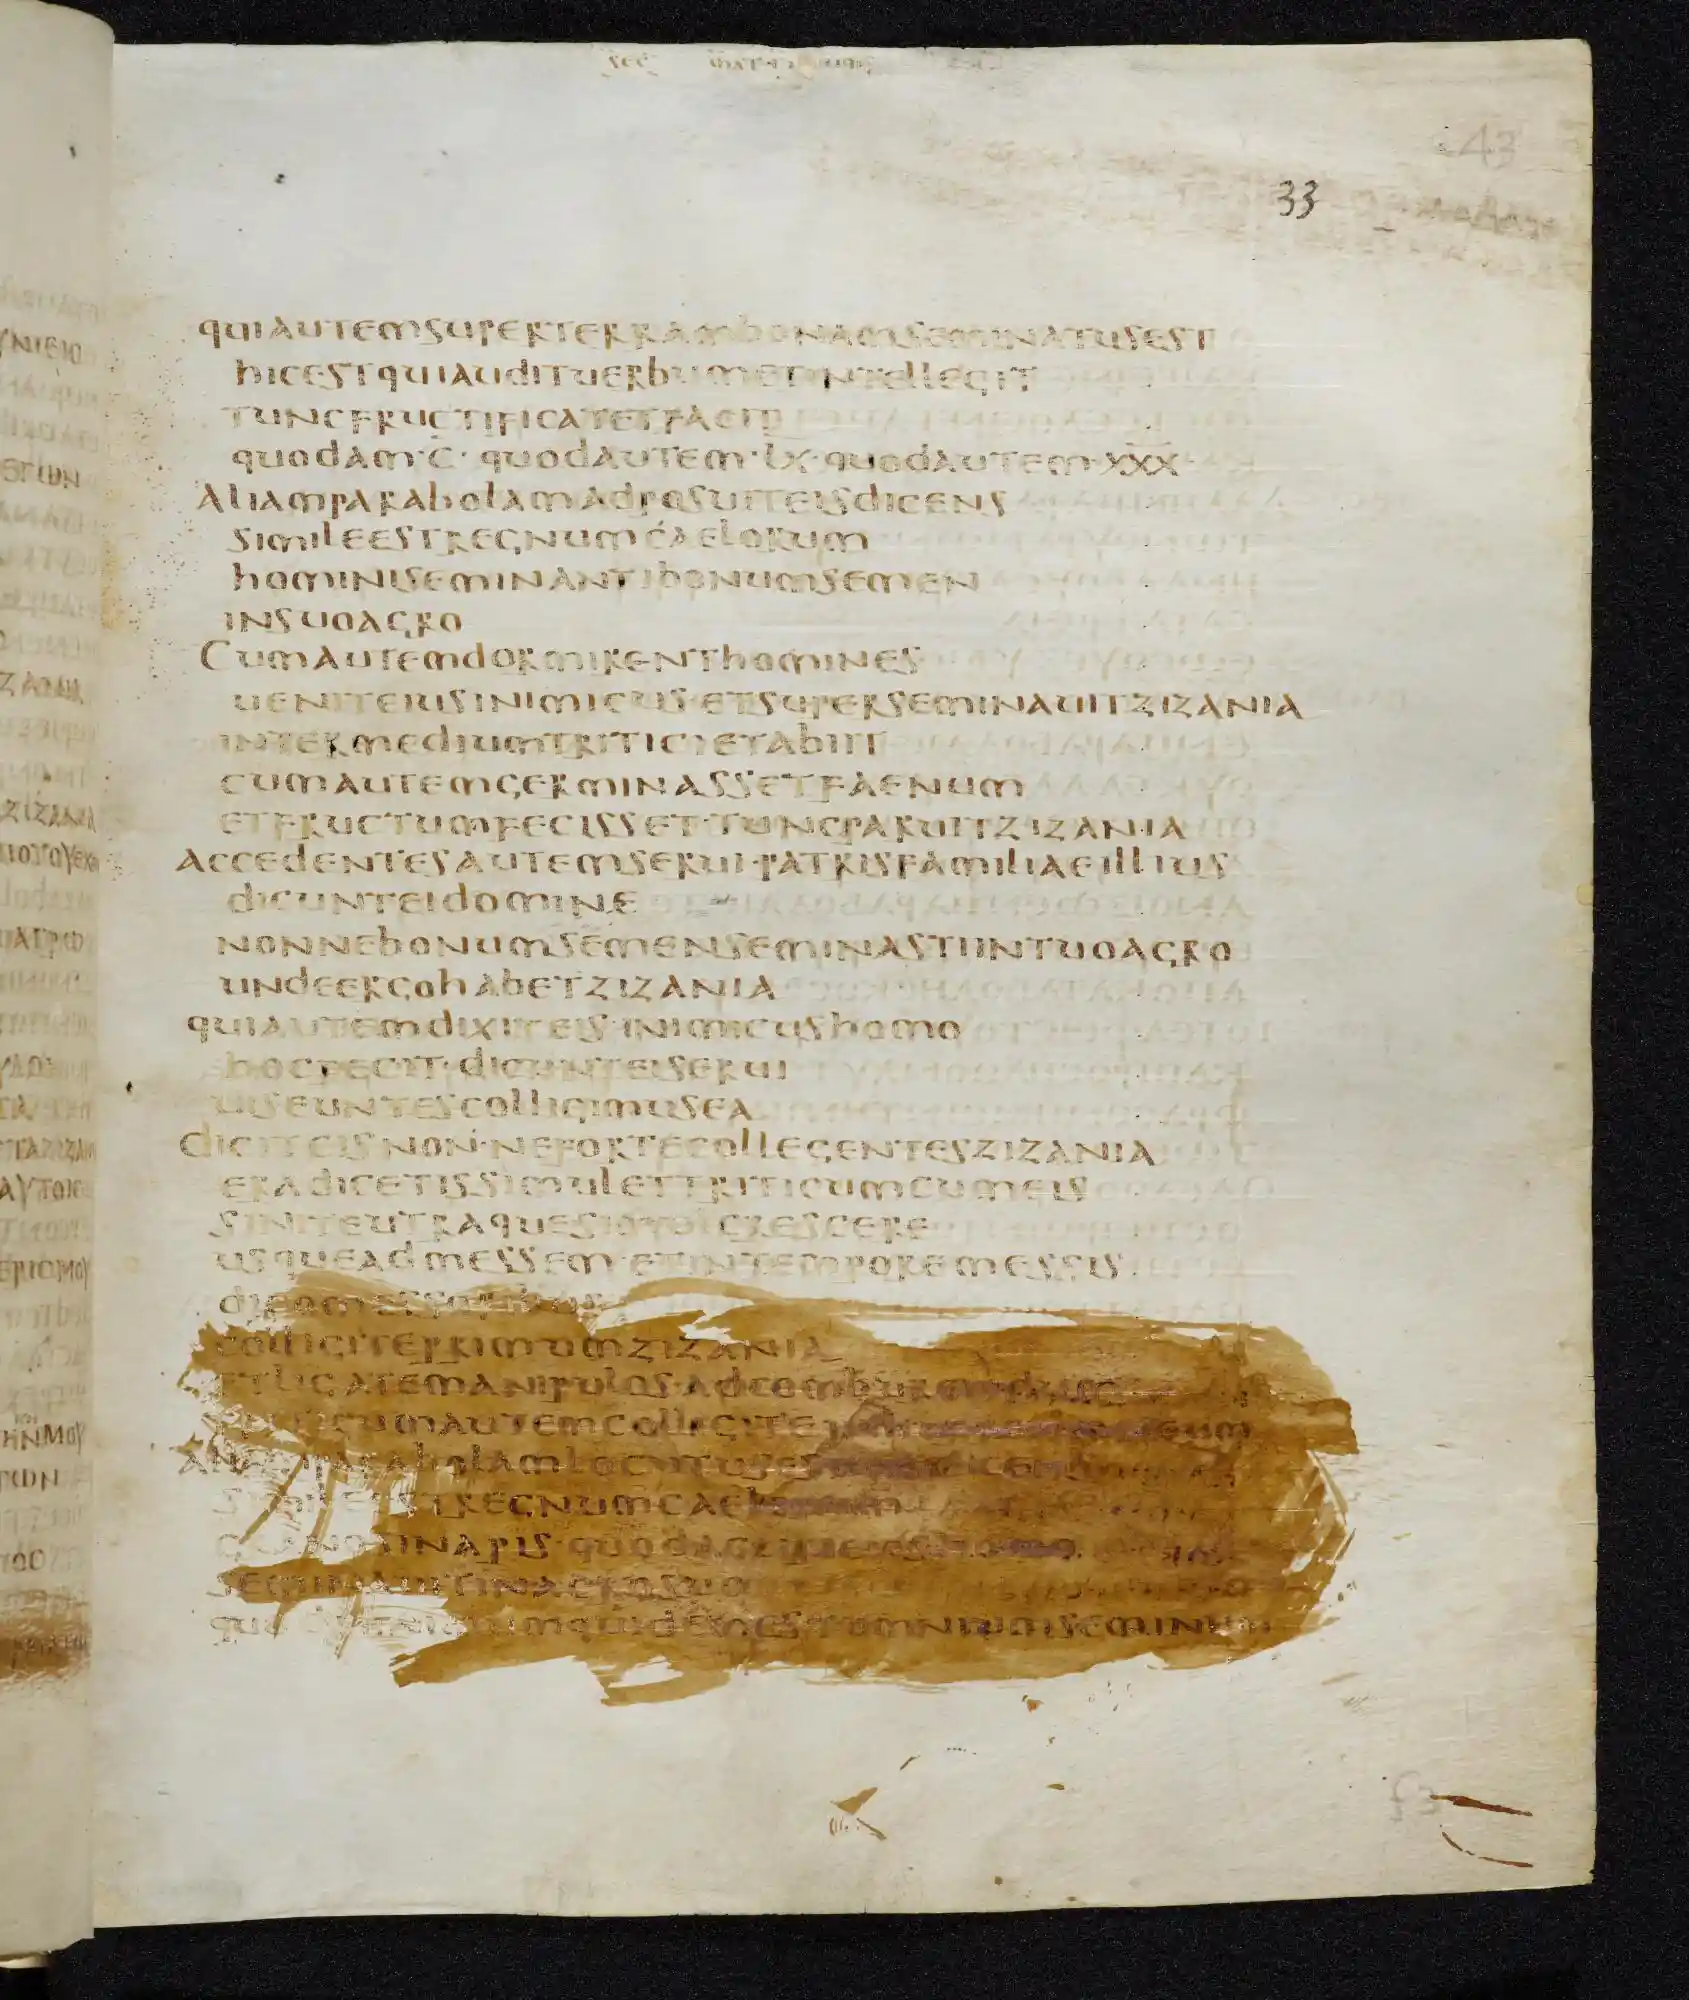 33
quiautemsuperterrambonamseminatusest
hicestquiauditverbumetintellegit
tuncfructificatetfacit
quodam·c·quodautem·lx·quodautem·xxx
Aliamparabolamadposuiteisdicens
simileestregnumcaelorum
hominiseminantibonumsemen
insuoagro
Cumautemdormirenthomines
ueniteiusinimicus·etsuperseminauitzizania
intermediumtriticietabiit
cumautemgerminassetfaenum
etfructumfecisset·tuncparuitzizania
accedentesautemserui·patrisfamiliaeillius
dicunteidomine
nonnebonumsemenseminastiintuoagro
undeergohabetzizania
quiautemdixiteis·inimicushomo
hocfecit·dicunteiserui
uiseuntescolligimusea
diciteisnon·nefortecollegenteszizania
eradicetissimulettriticumcumeis
siniteutraquesimolcrescere
usqueadmessem·etintemporemessis
dicomessoribus
colligiteprimumzizania
etligatemanipulos·adcomburendum
triticumautemcolligite
parabolamlocutusest
simileestregnumcaelorum
granosinapis·quodaccipienshomo
seminauitinagrosuo
quidemestomniumseminum